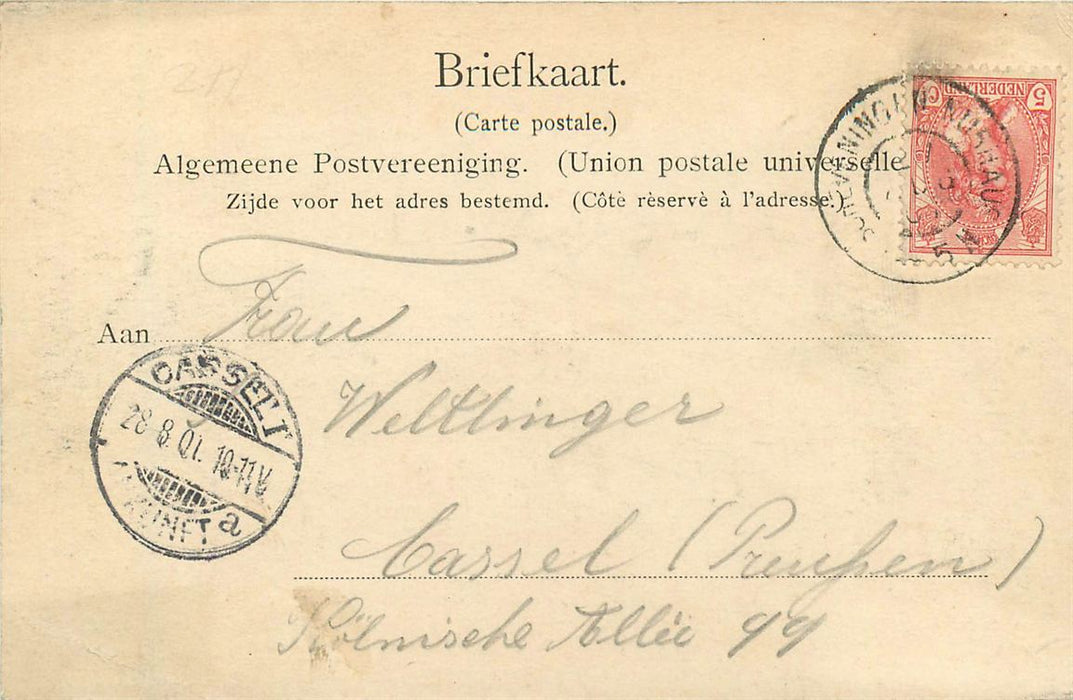 Briefkaart.
(Carte postale.)
Algemeene Postvereeniging. (Union postale universelle
Zijde voor het adres bestemd. (Côté réservé à l'adresse.
NEDERLAND
5 C
SCHEVENINGEN KURHAUS
Aan Frau
CASSEL 1
28.8.01. 10-11 V.
a
Weltlinger
Cassel (Preußen)
Kölnische Allée 99